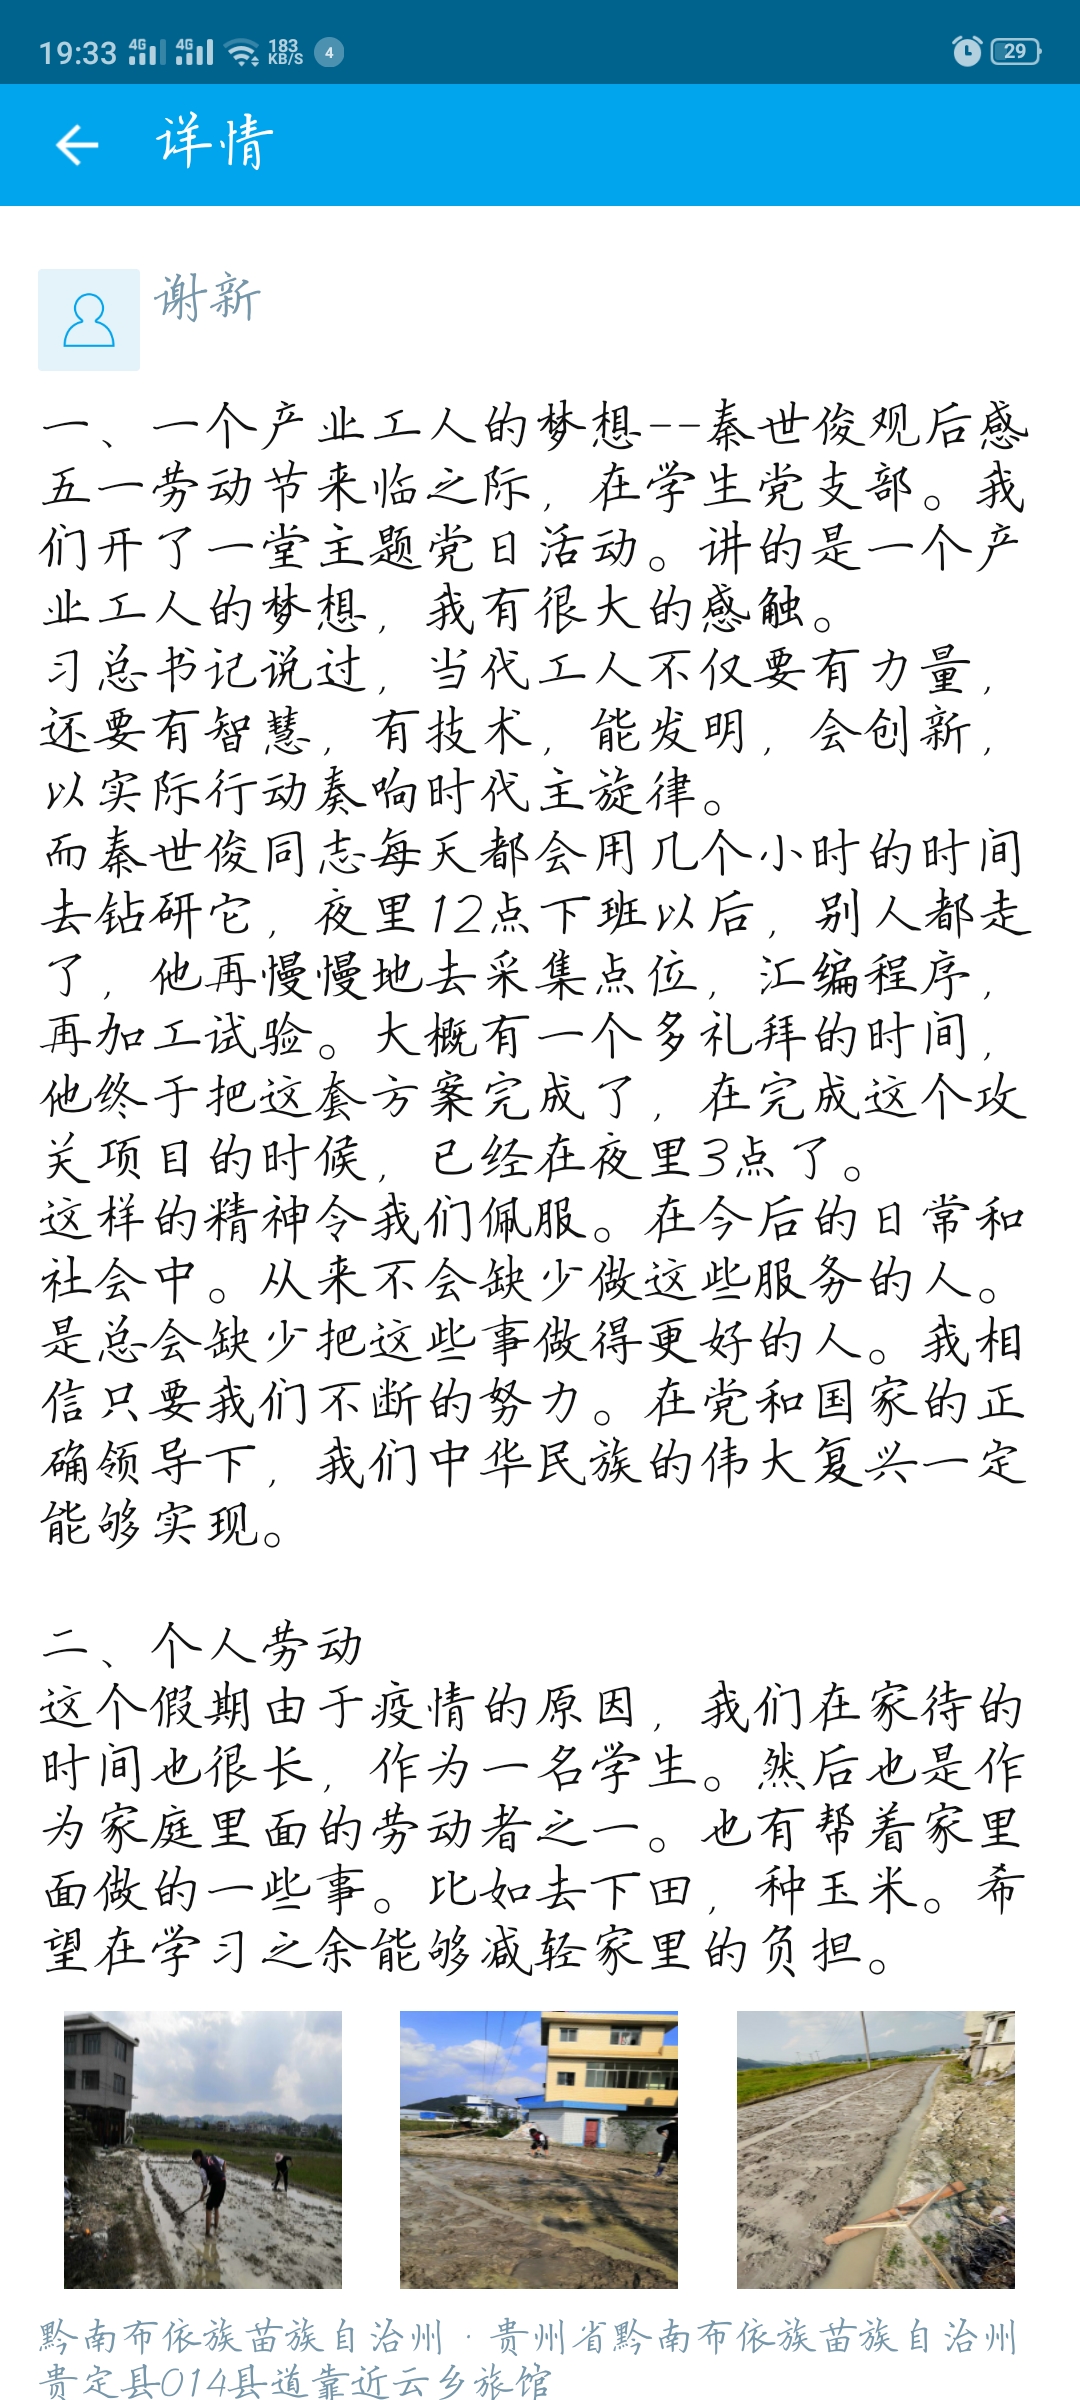 19:33 4G 4G 183 KB/S 4 29
详情
谢新
一、一个产业工人的梦想--秦世俊观后感
五一劳动节来临之际，在学生党支部。我
们开了一堂主题党日活动。讲的是一个产
业工人的梦想，我有很大的感触。
习总书记说过，当代工人不仅要有力量，
还要有智慧，有技术，能发明，会创新，
以实际行动奏响时代主旋律。
而秦世俊同志每天都会用几个小时的时间
去钻研它，夜里12点下班以后，别人都走
了，他再慢慢地去采集点位，汇编程序，
再加工试验。大概有一个多礼拜的时间，
他终于把这套方案完成了，在完成这个攻
关项目的时候，已经在夜里3点了。
这样的精神令我们佩服。在今后的日常和
社会中。从来不会缺少做这些服务的人。
是总会缺少把这些事做得更好的人。我相
信只要我们不断的努力。在党和国家的正
确领导下，我们中华民族的伟大复兴一定
能够实现。
二、个人劳动
这个假期由于疫情的原因，我们在家待的
时间也很长，作为一名学生。然后也是作
为家庭里面的劳动者之一。也有帮着家里
面做的一些事。比如去下田，种玉米。希
望在学习之余能够减轻家里的负担。
黔南布依族苗族自治州·贵州省黔南布依族苗族自治州
贵定县014县道靠近云乡旅馆